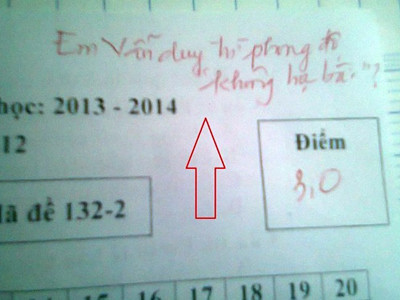 Em Vẫn duy trì phong độ
"không hạ bà."?
học: 2013 - 2014
12
Điểm
3,0
ã đề 132-2
15 16 17 18 19 20